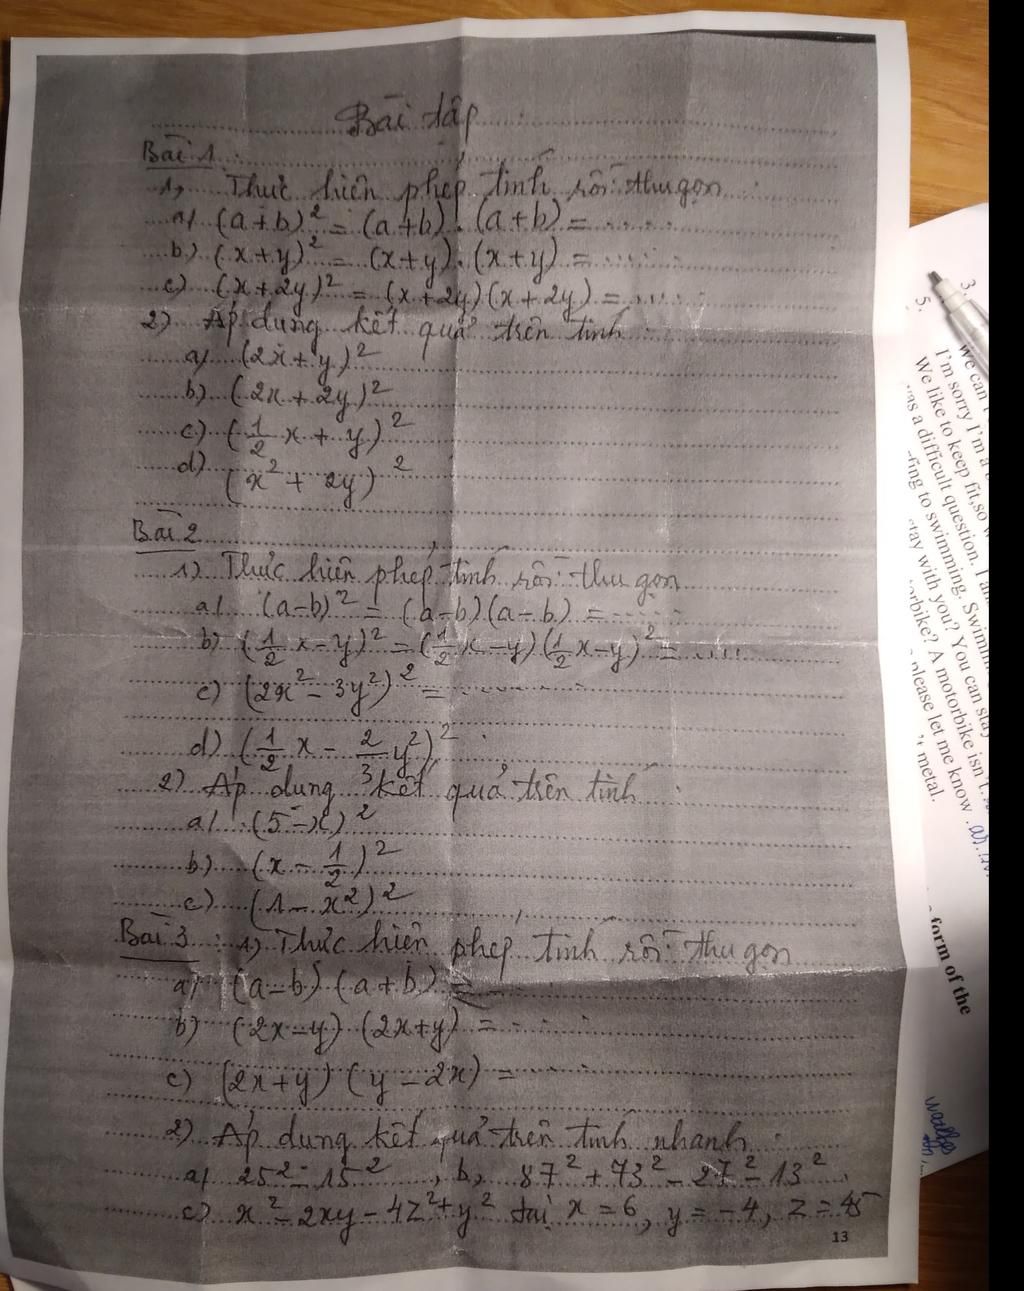 Bài tập
Bài 1 :
1, Thực hiện phép tính rồi thu gọn :
a) (a+b)² = (a+b).(a+b) = ......
b) (x+y)² = (x+y).(x+y) = ......
c) (x+2y)² = (x+2y)(x+2y) = .....
2) Áp dụng kết quả trên tính :
a) (2x+y)²
b) (2x+2y)²
c) (1/2 x + y)²
d) (x² + 2y)²
Bài 2
1) Thực hiện phép tính rồi thu gọn
a) (a-b)² = (a-b)(a-b) = ......
b) (1/2 x - y)² = (1/2 x - y)(1/2 x - y)² = ....
c) (2x² - 3y²)² = ..........
d) (1/2 x - 2/3 y²)²
2) Áp dụng kết quả trên tính :
a) (5-x)²
b) (x - 1/2)²
c) (1 - x²)²
Bài 3 : 1) Thực hiện phép tính rồi thu gọn
a) (a-b)(a+b) = ....
b) (2x-y)(2x+y) = ......
c) (2x+y)(y-2x) = ....
2) Áp dụng kết quả trên tính nhanh :
a) 25² - 15² , b, 87² + 73² - 27² - 13²
c) x² - 2xy - 4z² + y² tại x = 6, y = -4, z = 45
13
3.
5.
we can't
I'm sorry I'm a
We like to keep fit,so w
was a difficult question. I am
fing to swimming. Swimmi
stay with you? You can stay
orbike? A motorbike isn't
please let me know
metal.
form of the